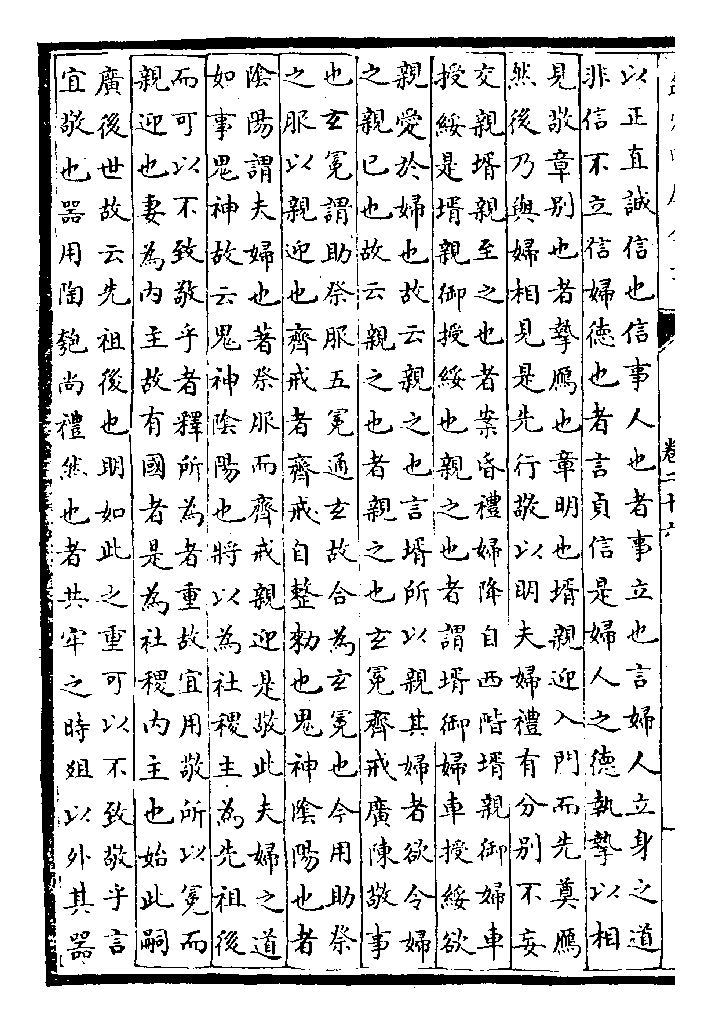 以正直誠信也信事人也者事立也言婦人立身之道
非信不立信婦德也者言貞信是婦人之德執摯以相
見敬章別也者摯鴈也章明也壻親迎入門而先奠鴈
然後乃與婦相見是先行敬以明夫婦禮有分別不妄
交親壻親至之也者案昏禮婦降自西階壻親御婦車
授綏是壻親御授綏也親之也者謂壻御婦車授綏欲
親愛於婦也故云親之也言壻所以親其婦者欲令婦
之親已也故云親之也者親之也玄冕齊戒廣陳敬事
也玄冕謂助祭服五冕通玄故合為玄冕也今用助祭
之服以親迎也齊戒者齊戒自整勑也鬼神陰陽也者
陰陽謂夫婦也著祭服而齊戒親迎是敬此夫婦之道
如事鬼神故云鬼神陰陽也將以為社稷主為先祖後
而可以不致敬乎者釋所為者重故宜用敬所以冕而
親迎也妻為内主故有國者是為社稷内主也始此嗣
廣後世故云先祖後也明如此之重可以不致敬乎言
宜敬也器用陶匏尚禮然也者共牢之時俎以外其器
卷二十六